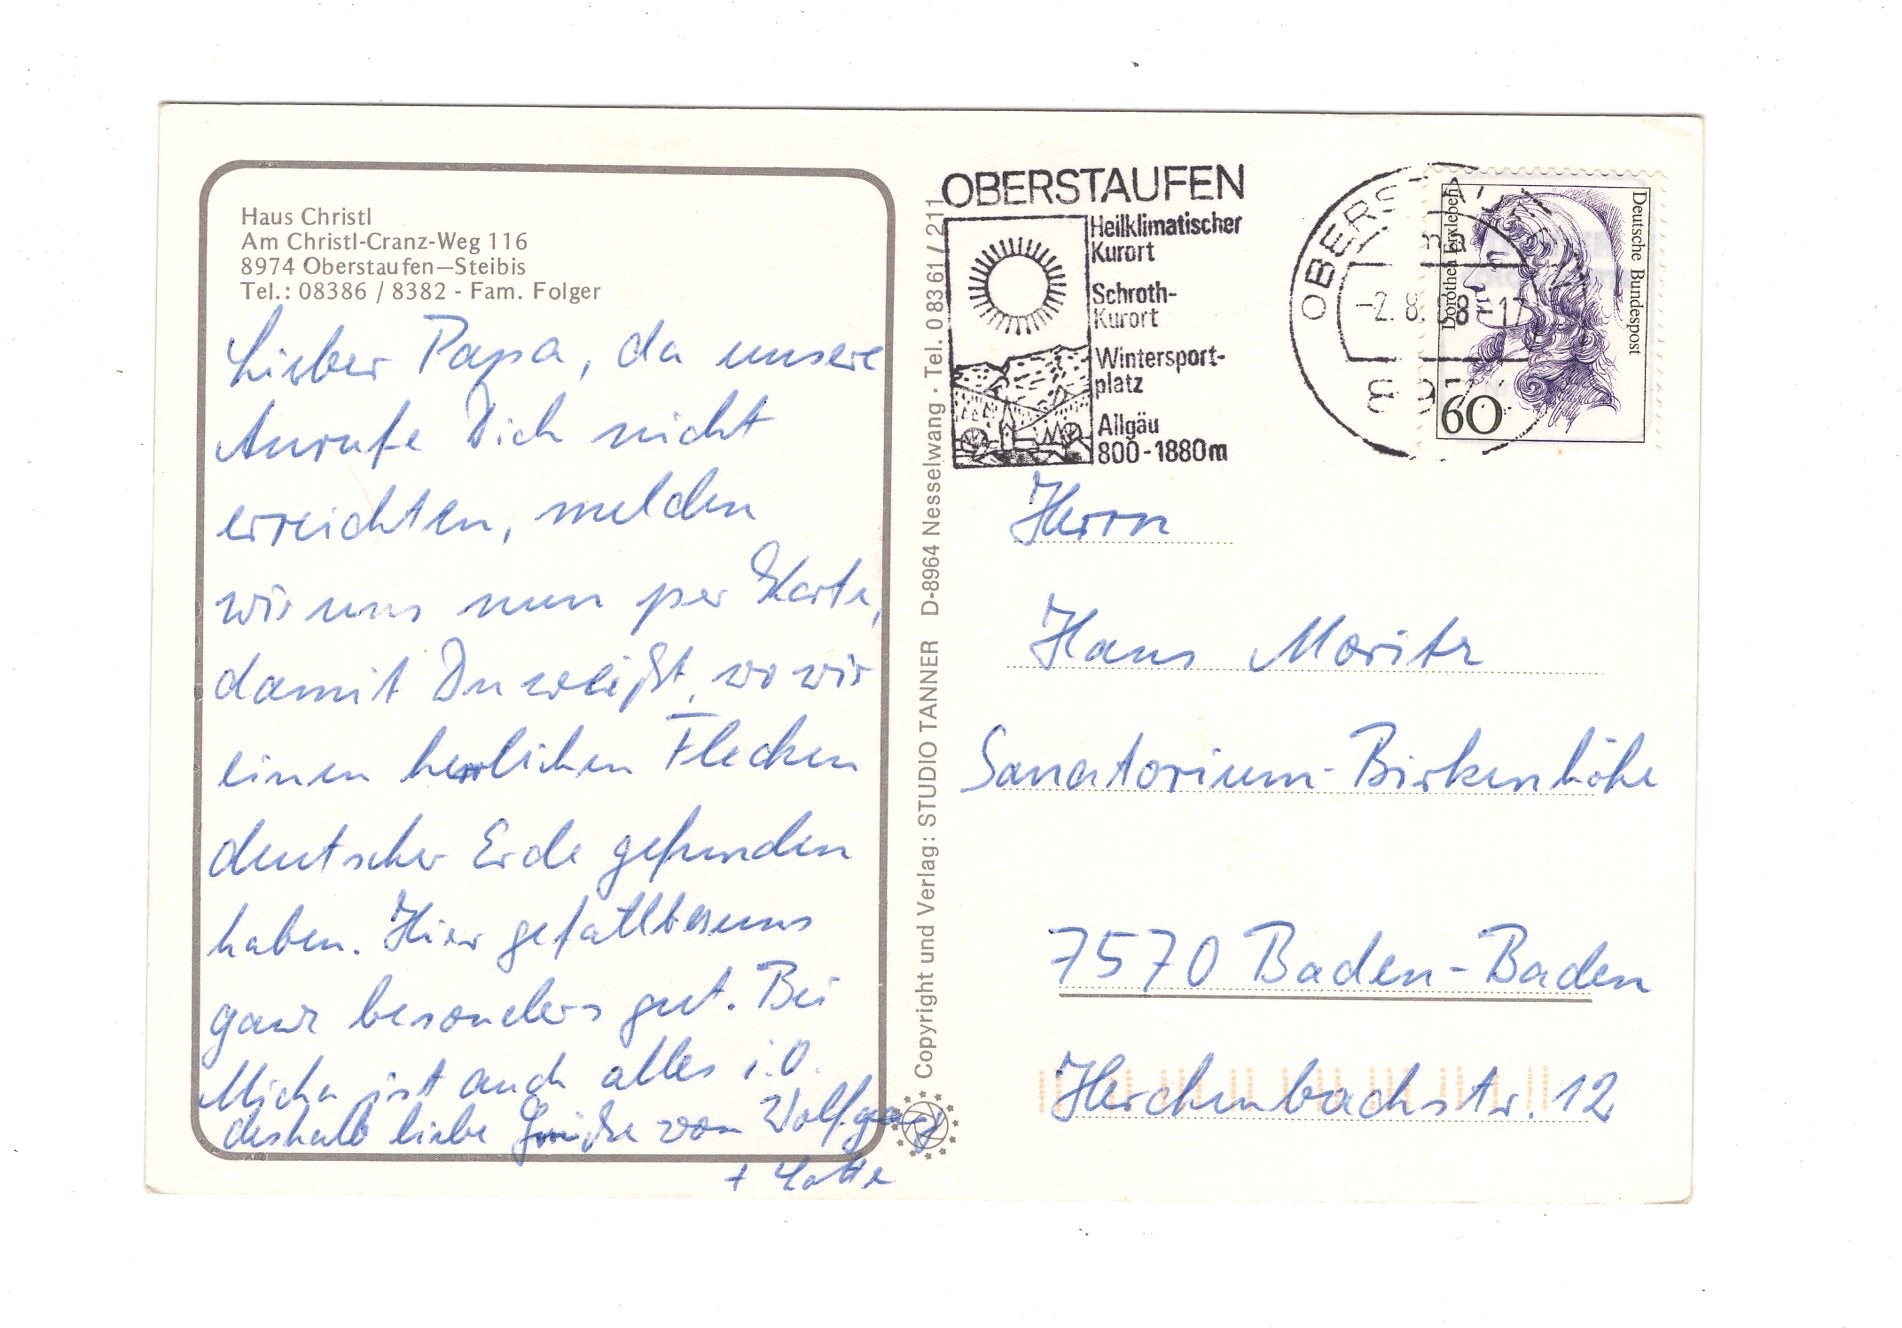 Haus Christl
Am Christl-Cranz-Weg 116
8974 Oberstaufen—Steibis
Tel.: 08386 / 8382 - Fam. Folger
Lieber Papa, da unsere
Anrufe Dich nicht
erreichten, melden
wir uns nun per Karte,
damit Du weißt, wo wir
einen herrlichen Flecken
deutscher Erde gefunden
haben. Hier gefällt es uns
ganz besonders gut. Bei
Micha ist auch alles i.O.
deshalb liebe Grüße von Wolfgang
+ Lotte
Copyright und Verlag: STUDIO TANNER D-8964 Nesselwang · Tel. 08361/211
OBERSTAUFEN
Heilklimatischer
Kurort
Schroth-
Kurort
Wintersport-
platz
Allgäu
800-1880m
OBERSTAUFEN
-2.8.88-17
897
Dorothea Erxleben
Deutsche Bundespost
60
Herrn
Hans Moritz
Sanatorium-Birkenhöhe
7570 Baden-Baden
Herchenbachstr. 12